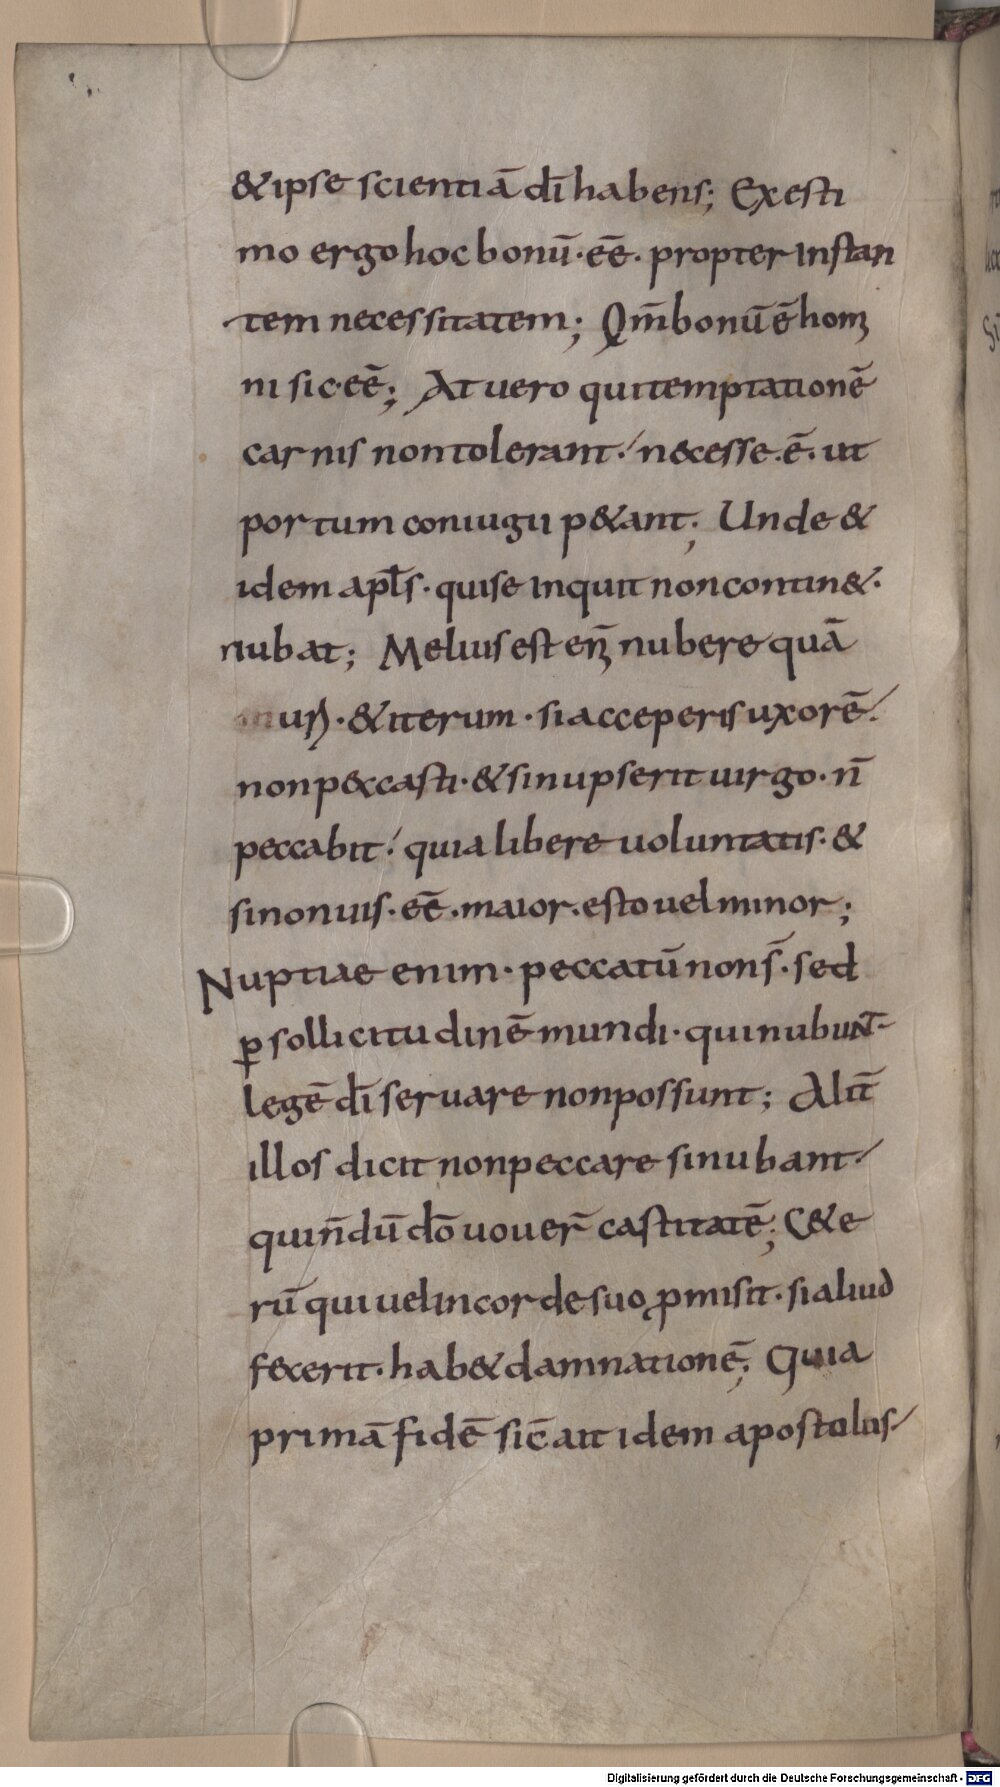 & ipse scientiā dī habens; Exesti
mo ergo hoc bonū· eē· propter instan
tem necessitatem; Qm̄ bonū ē homi
ni sic· eē; At uero qui temptationē
carnis non tolerant· necesse· ē· ut
portum coniugii p&ant; Unde &
idem apłs· qui se inquit non contin&·
nubat; Melius est eni nubere quā
uri· & iterum· si acceperis uxorē·
non peccasti· & si nupserit uirgo· n̄
peccabit· quia libere uoluntatis· &
si non uis· eē· maior· esto uel minor;
Nuptiae enim· peccatū non s̄· sed
ꝑ sollicitudinē mundi· qui nubunt
legē dī seruare non possunt; Alit̄
illos dicit non peccare si nubant·
qui n̄dū dō uouer̄ castitatē; C&e
rū qui uel in corde suo ꝓmisit· si aliud
fecerit· hab& damnationē; Quia
primā fidē sic̄ ait idem apostolus·
Digitalisierung gefördert durch die Deutsche Forschungsgemeinschaft - DFG